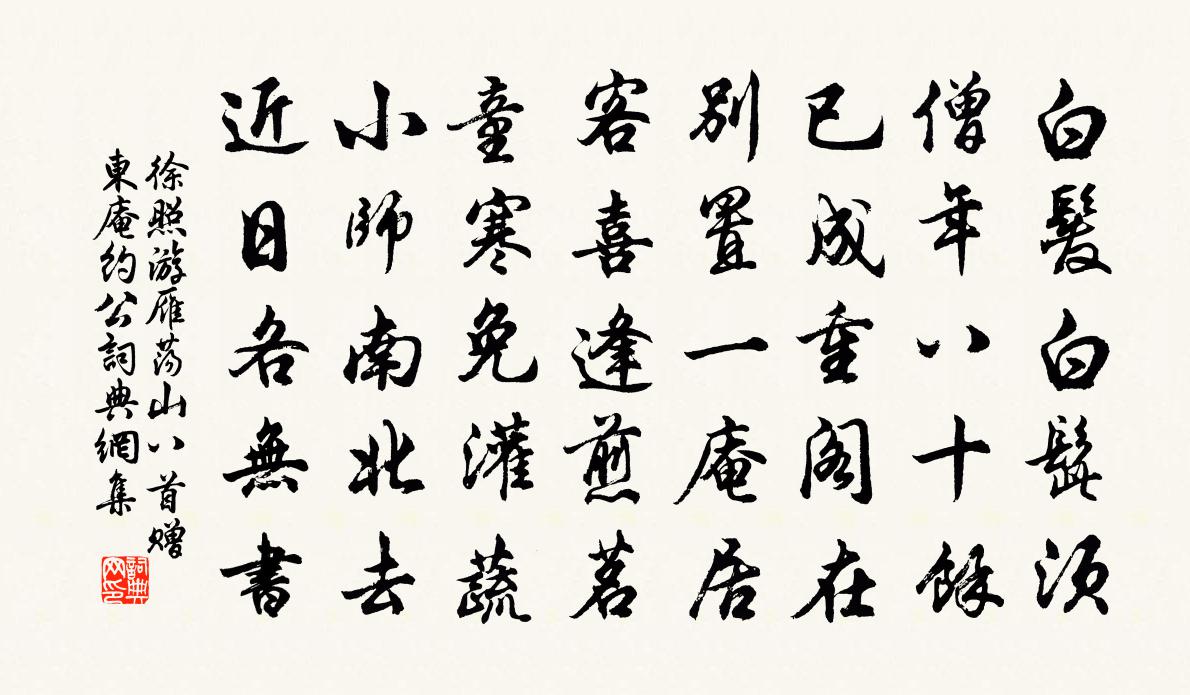 白髮白髭須
僧年八十餘
已成重阁在
別置一庵居
客喜逢煎茗
童寒免灌蔬
小師南北去
近日各無書
徐照游雁荡山八首赠
東庵約公詞典網集
詞典网印